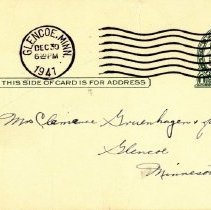 GLENCOE, MINN.
DEC 30
6 PM
1941
THIS SIDE OF CARD IS FOR ADDRESS
Mrs Clemence Gruenhagen
Glencoe
Minnesota